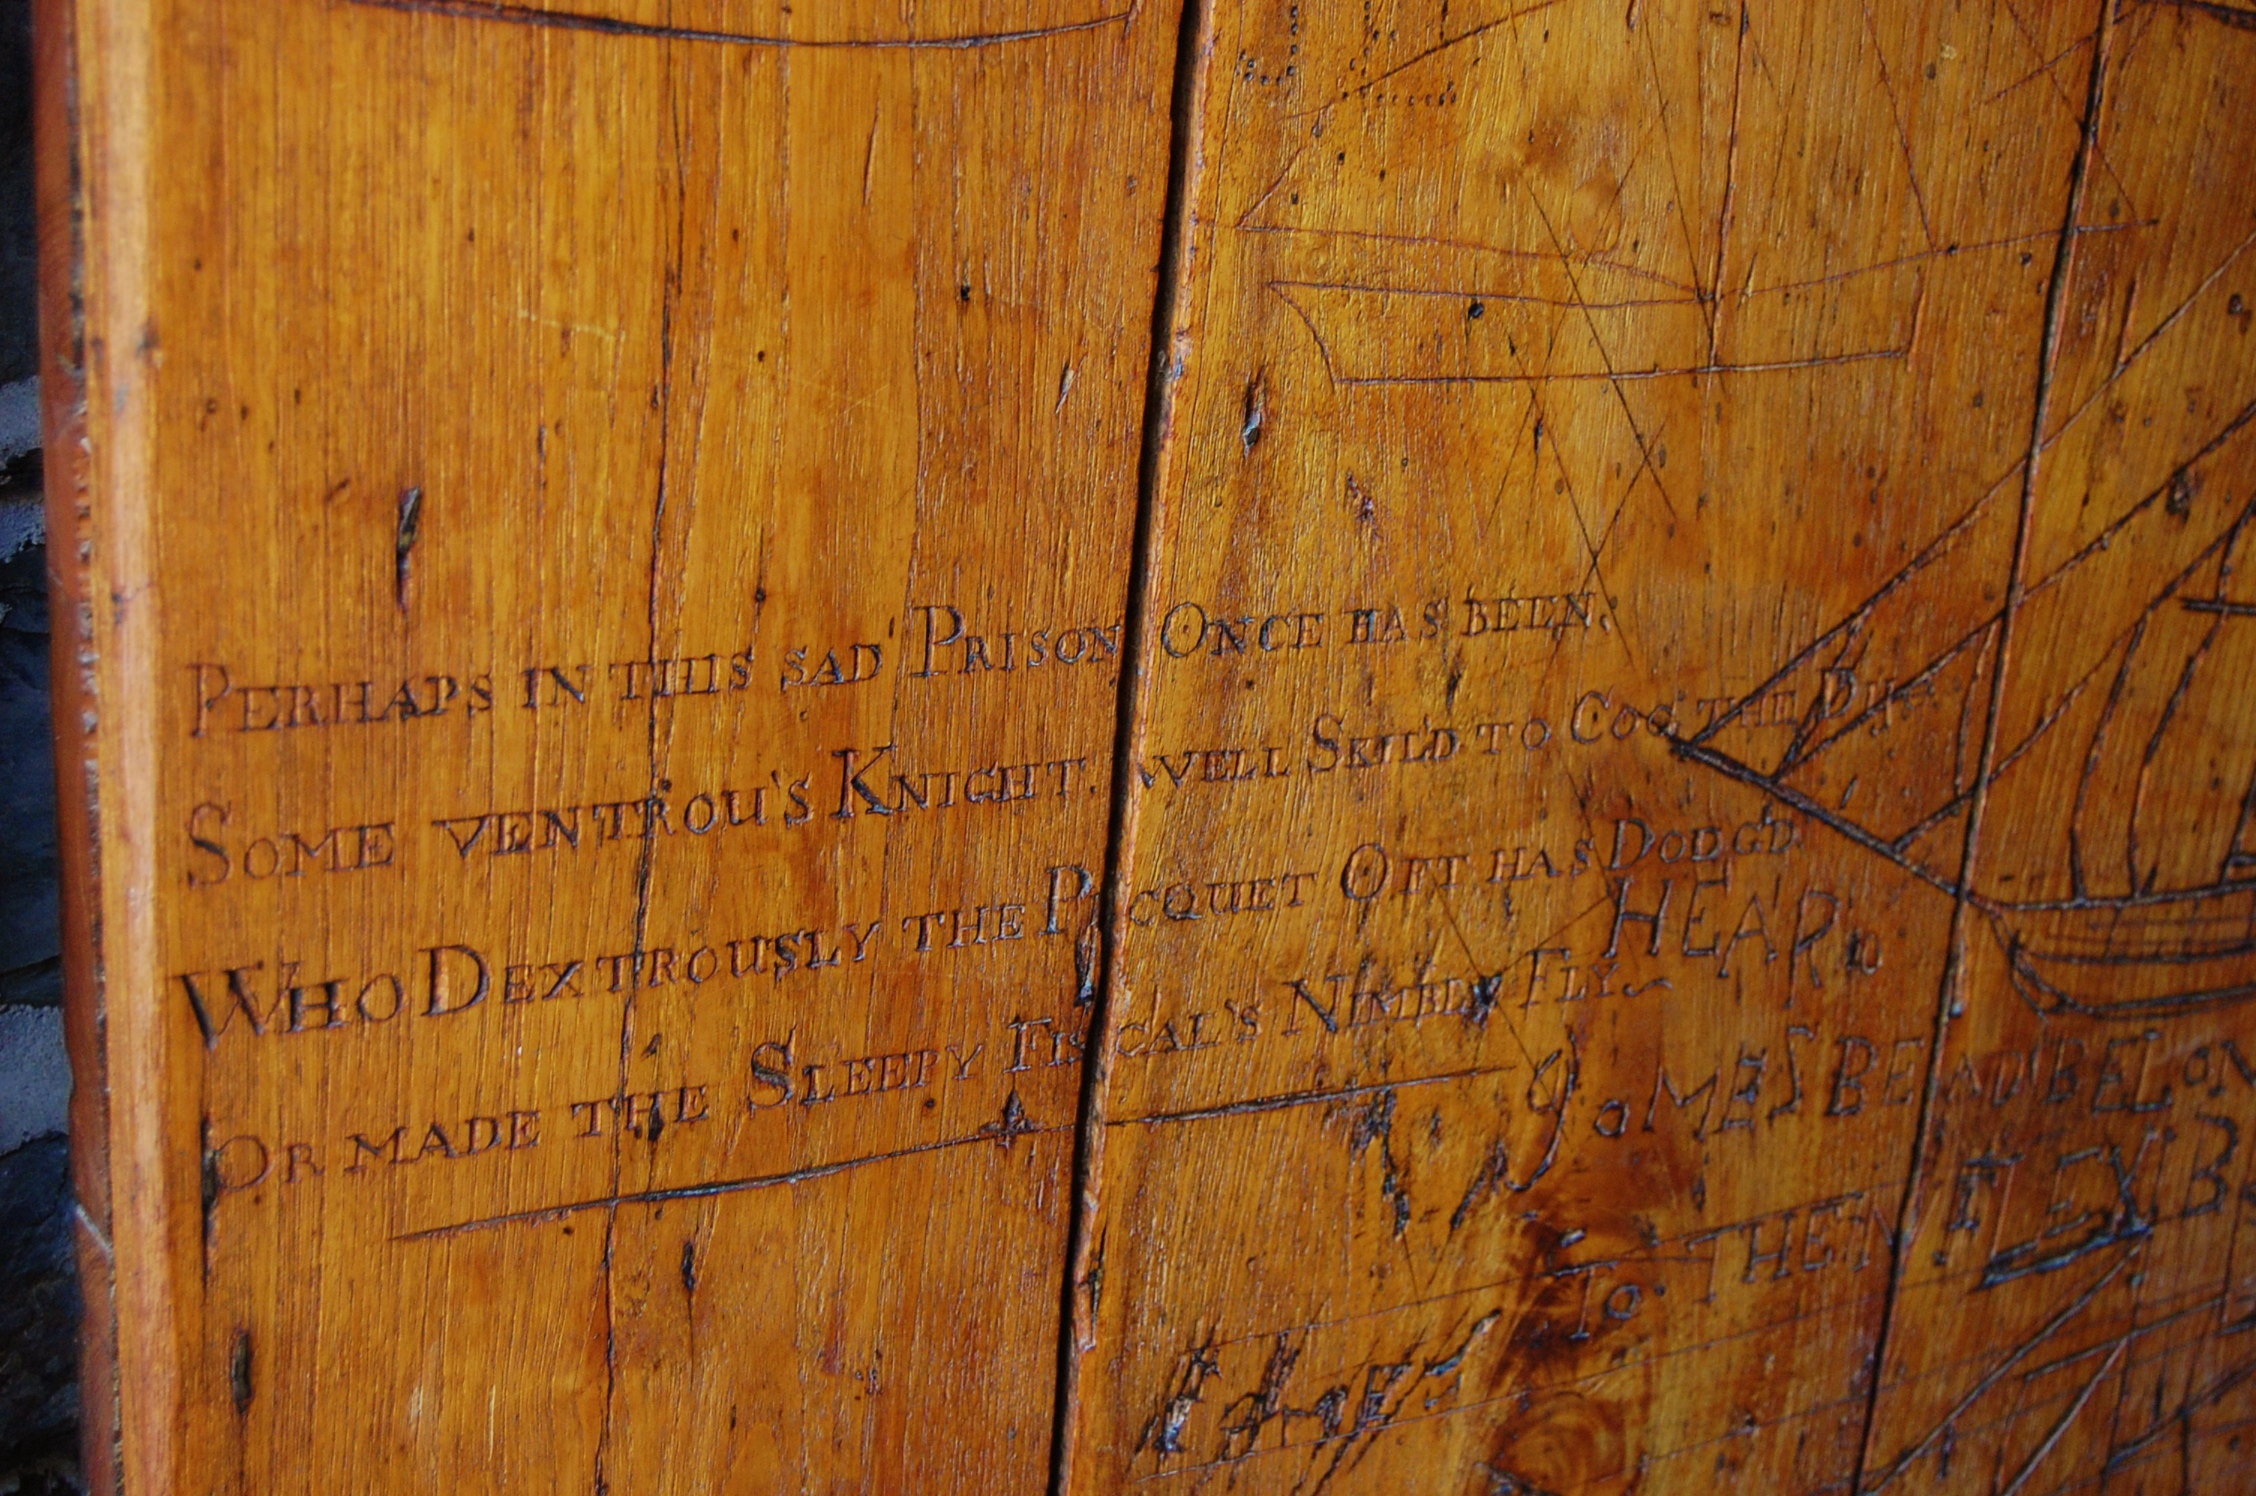 PERHAPS IN THIS SAD PRISON ONCE HAS BEEN.
SOME VENTROU'S KNIGHT. WELL SKIL'D TO COG THE
WHO DEXTROUSLY THE PACQUET OFT HAS DODG'D
OR MADE THE SLEEPY FISCAL'S NIMBLY FLY
HEAR
JOMES BEAD BELON
TO THE